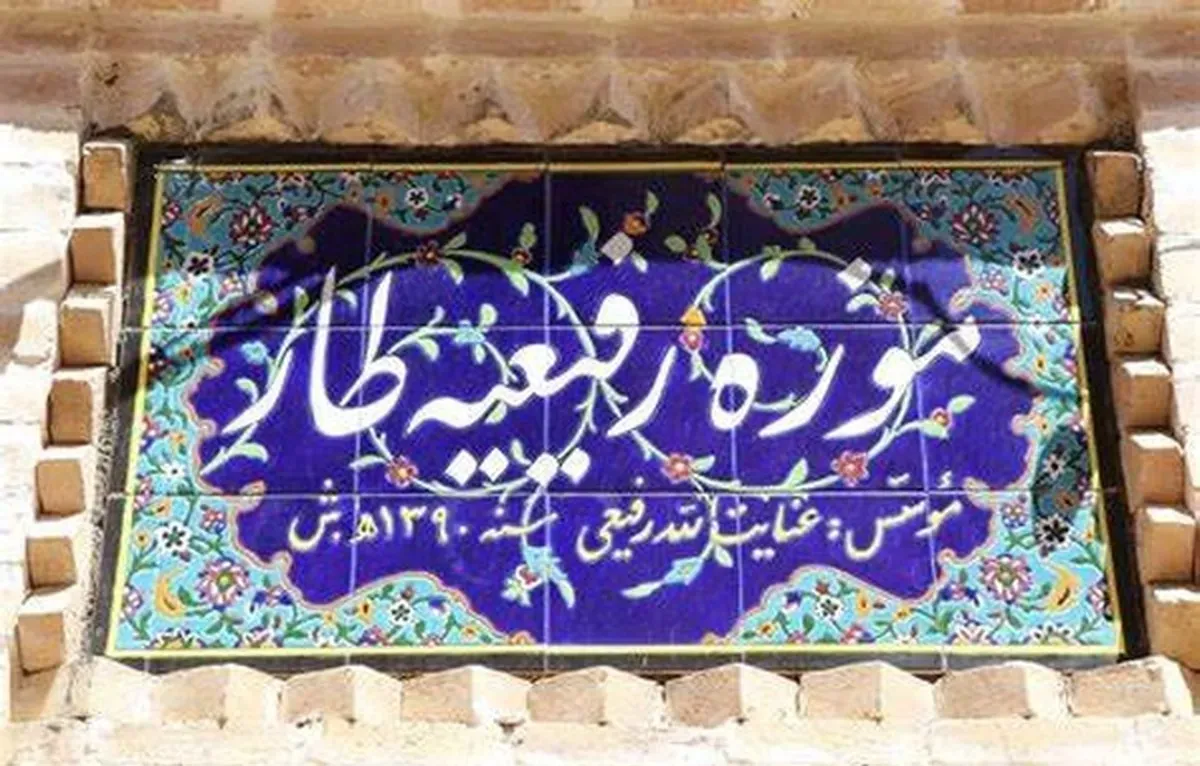 موزه رفیعیه طار
مؤسّس: عنایت الله رفیعی سنه ۱۳۹۰ ه.ش